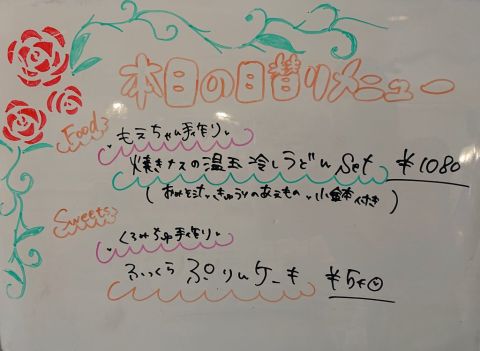 本日の日替りメニュー
Food
もえちゃん手作り
焼きナスの温玉冷しうどん Set ¥1080
(おみそ汁、きゅうりのあえもの、小鉢付き)
Sweets
くるみちゃん手作り
ふっくら ぷりんケーキ ¥540